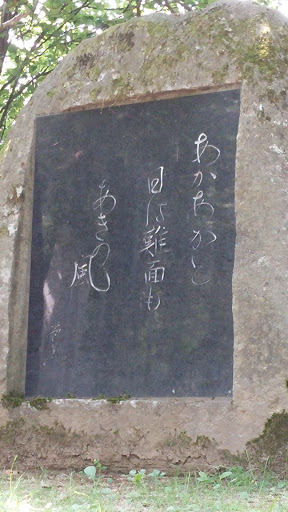 あかあかと
日は難面も
あきの風